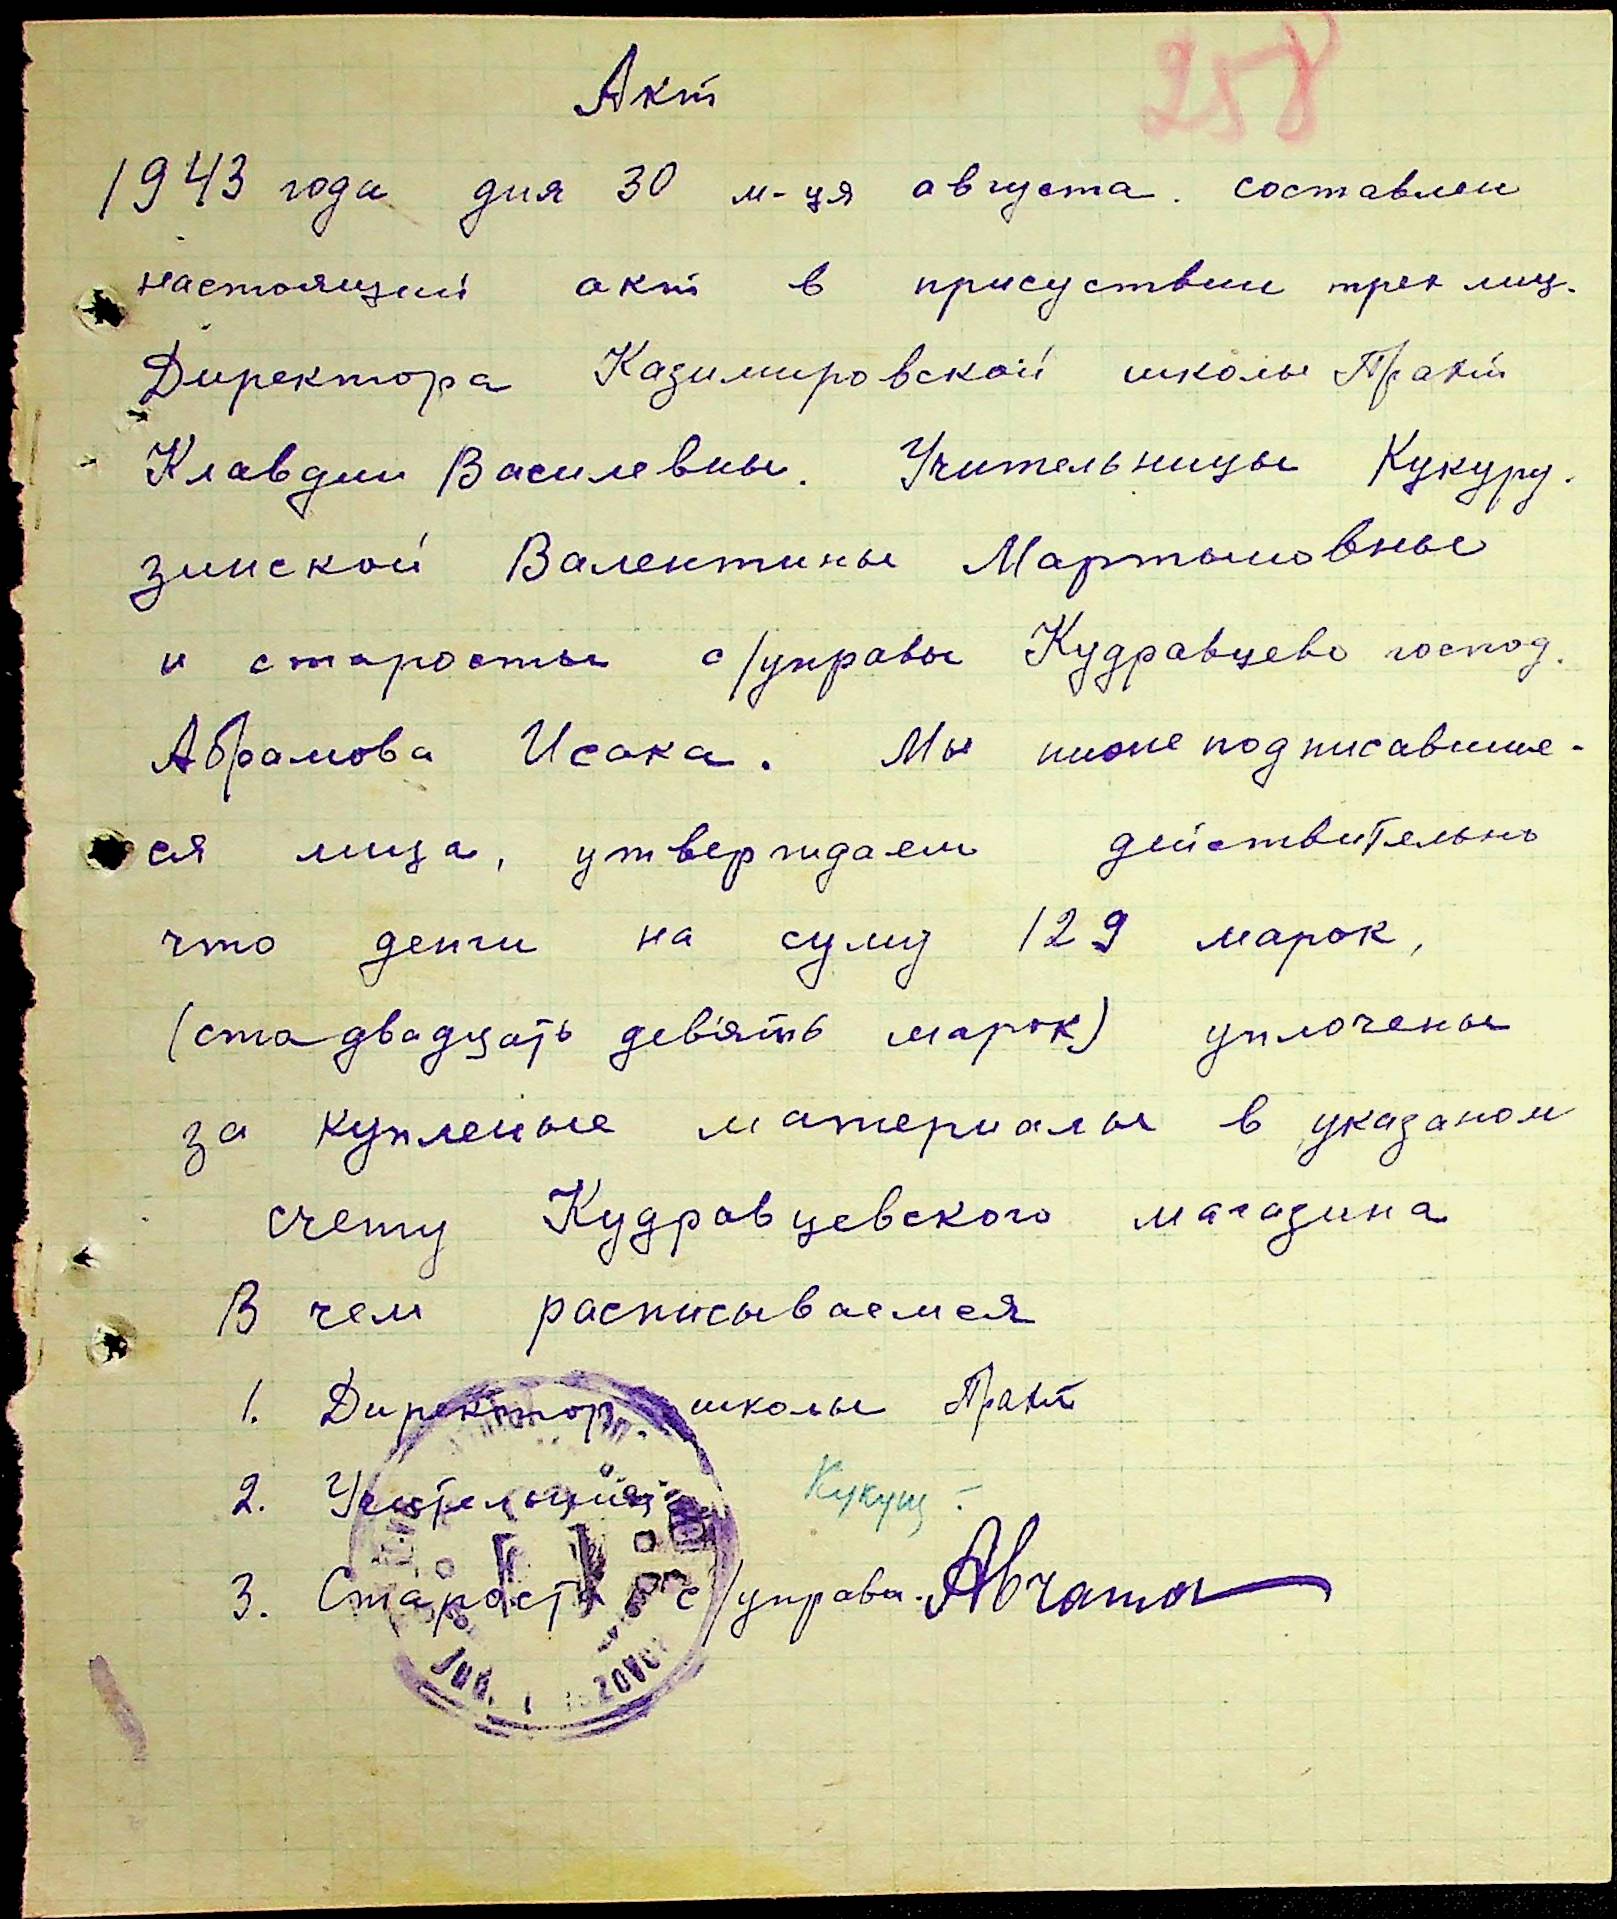 258
Акт
1943 года дня 30 м-ця августа. составлен
настоящий акт в присуствии трех лиц.
Директора Казимировской школы Практ
Клавдии Василевны. Учительницы Кукуру.
зинской Валентины Мартыновны
и старосты с/управы Кудравцево господ.
Абрамова Исака. Мы нижеподписавшие-
ся лица, утверждаем действительно
что денги на суму 129 марок,
(ста двадцать девять марок) уплочены
за купленые материалы в указаном
счету Кудравцевского магазина
В чем расписываемся
1. Директор школы Практ
2. Учительница
3. Староста с/управы.